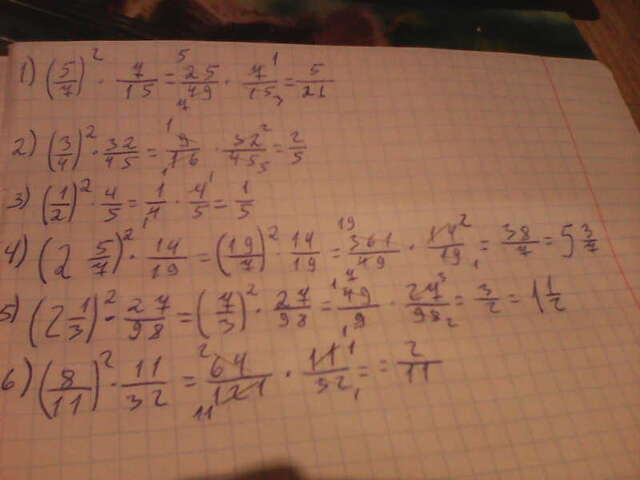 1) (5/7)² · 7/15 = 25/49 · 7/15 = 5/21
2) (3/4)² · 32/45 = 9/16 · 32/45 = 2/5
3) (1/2)² · 4/5 = 1/4 · 4/5 = 1/5
4) (2 5/7)² · 14/19 = (19/7)² · 14/19 = 361/49 · 14/19 = 38/7 = 5 3/7
5) (2 1/3)² · 27/98 = (7/3)² · 27/98 = 49/9 · 27/98 = 3/2 = 1 1/2
6) (8/11)² · 11/32 = 64/121 · 11/32 = = 2/11